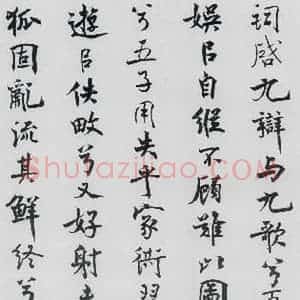 詞啓九辯与九歌兮
娛以自縱不顧難以圖
兮五子用失乎家衖羿
遊以佚畋兮又好射夫
狐固亂流其鮮終兮
Shufaziliao.com